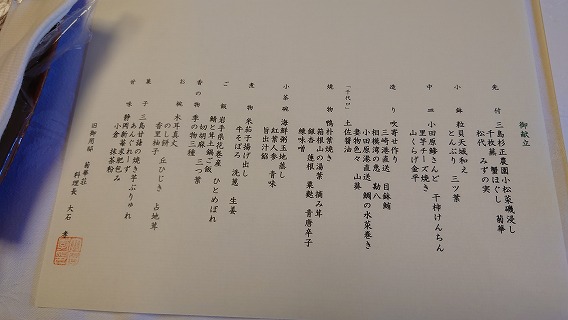 御献立
先付 三島杉正農園小松菜磯浸し
千枚蕪 蟹ほぐし 菊華
松代 みずの実
小鉢 粒貝天城和え
とんぶり 三ツ葉
中皿 小田原蜂さんど 干柿けんちん
里芋チーズ焼き
山くらげ金平
造り 吹寄せ作り
三崎港直送 目鉢鮪
相模湾の恵 勘八
小田原港直送 鯛の水菜巻き
妻物色々 山葵
土佐醤油
焼物 鴨朴葉焼き
箱根山の湯葉 摘み茸
銀杏 蓮根 粟麩 青唐辛子
練味噌
小茶碗 海鮮粥玉地蒸し
紅葉人参 青味
旨出汁餡
煮物 米茄子揚げ出し
牛そぼろ 洗葱 生姜
ご飯 岩手県花巻産 ひとめぼれ
鯖と茸土鍋ご飯
切胡麻 三つ葉
香の物 季の物三種
お椀 木耳真丈
のし餅 丘ひじき 占地茸
香里柚子
菓子 三島甘藷の焼き芋ぶりゅれ
あんぐれーず
甘味 静岡新幕米肥包み
小倉 抹茶粉
旧御用邸 菊華荘
料理長 大石